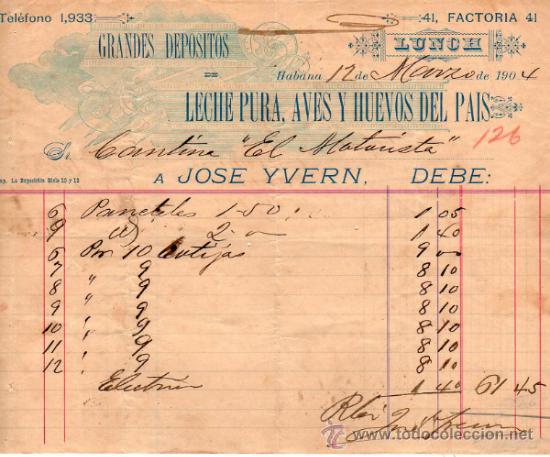 Teléfono 1,933
41, FACTORIA 41
GRANDES DEPOSITOS
LUNCH
DE
Habana 12 de Marzo de 1904
LECHE PURA, AVES Y HUEVOS DEL PAIS
126
Sr. Cantina "El Motorista"
A JOSE YVERN, DEBE:
6 Panetelas 1-50 1 05
9 2- 1 40
6 Por 10 botijas 9 00
7 " 9 8 10
8 " 9 8 10
9 " 9 8 10
10 " 9 8 10
11 " 9 8 10
12 " 9 8 10
1 40 61 45
todocoleccion.net